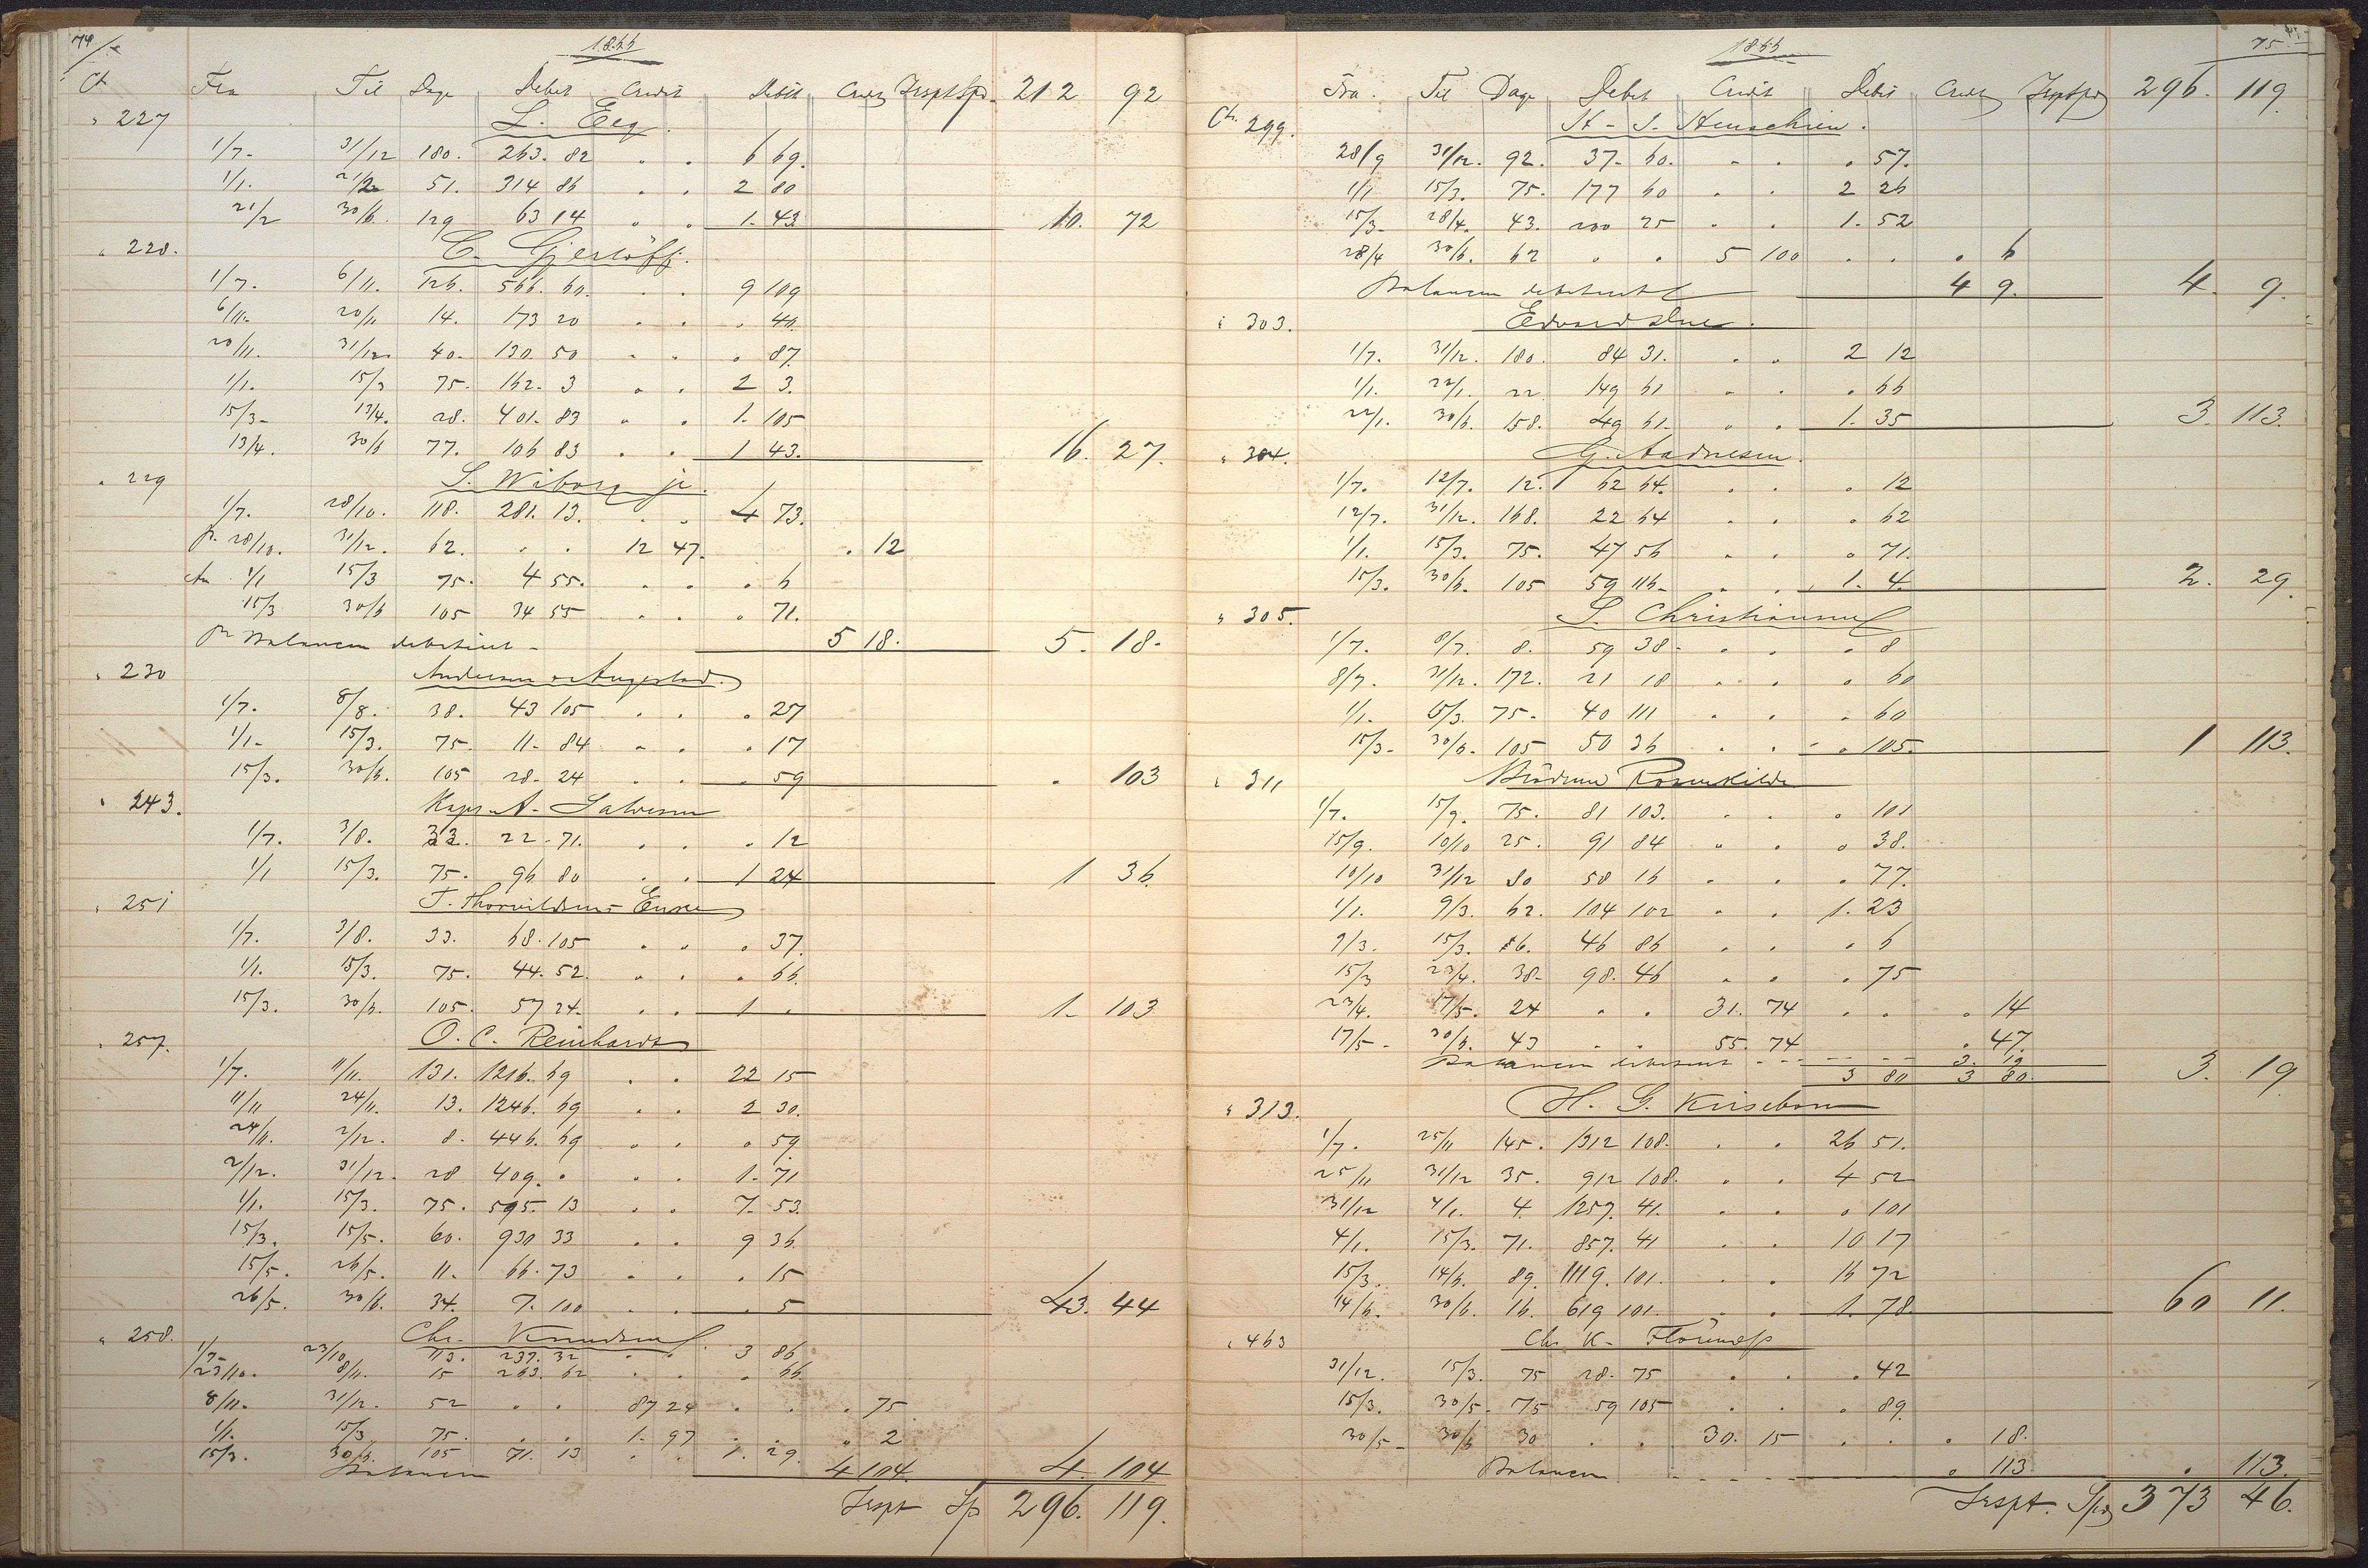 74
1866
Ct Fra Til Dage Debet Credit Debit Credit Trspt Spd. 212 92
" 227 L. Eeg.
1/7- 31/12 180. 263. 82 . . 6 69.
1/1. 21/2 51. 314 86 . . 2 80
21/2 30/6. 129 63 14 . . 1. 43 10. 72
" 228. C. Gjerlöff.
1/7. 6/11. 126. 566. 60. . . 9 109
6/11- 20/11 14. 173 20 . . . 40.
20/11. 31/12. 40. 130. 50 . . . 87.
1/1. 15/3 75. 162. 3 . . 2 3.
15/3- 13/4. 28. 401. 83 . . 1. 105
13/4. 30/6 77. 106 83 . . 1 43. 16. 27.
" 229 S. Wiborg jr.
1/7. 28/10. 118. 281. 13. . . 4 73.
fr. 28/10. 31/12. 62. . . 12 47. . 12
An 1/1 15/3 75. 4 55. . . . 6
15/3 30/6 105 34 55 . . . 71.
pr Balancen debiteret - 5 18. 5. 18.
" 230 Andersen & Angestad.
1/7. 8/8. 38. 43 105 . . . 27
1/1- 15/3. 75. 11- 84 . . . 17
15/3. 30/6. 105 28. 24 . . . 59 . 103
" 243. Kapt. A. Salvesen
1/7. 3/8. 33. 22. 71. . . . 12
1/1 15/3. 75. 96 80 . . 1 24 1 36.
" 251 T. Thorvildsens Enke
1/7. 3/8. 33. 68. 105 . . . 37.
1/1. 15/3. 75. 44. 52. . . . 66.
15/3. 30/6. 105. 57 24. . . 1 . 1- 103
" 257. O. C. Reinhardt
1/7. 11/11. 131. 1216. 69 . . 22 15
11/11 24/11. 13. 1246. 69 . . 2 30.
24/11. 2/12. 8. 446. 69 . . . 59.
2/12. 31/12. 28 409. . . . 1. 71
1/1. 15/3. 75. 595. 13 . . 7. 53.
15/3. 15/5. 60. 930 33 . . 9 36.
15/5. 26/5. 11. 66. 73 . . . 15
26/5. 30/6. 34. 7. 100 . . . 5 43. 44
" 258. Chr. Knudsen
1/7- 23/10 113. 237. 32 . . 3 86
23/10. 8/11. 15 263. 62 . . . 66.
8/11. 31/12. 52 . . 87 24 . . . 75
1/1. 15/3. 75. . . 1. 97 . . . 2
15/3. 30/6. 105 71. 13 . . 1. 29.
Balancen 4 104. 4. 104
Trspt Sp 296. 119.
1866 75
Fra. Til Dage Debet Credit Debit Credit Trspt Spd 296. 119.
Ct. 299.
28/9 31/12. 92. 37- 60. . . . 57.
1/1 15/3. 75. 177 60 . . 2 26
15/3- 28/4. 43. 200 25 . . 1. 52
28/4 30/6. 62 . . 5 100 . . . 6
Balancen debiteret 4 9. 4. 9.
" 303. Edvard Due.
1/7. 31/12. 180. 84 31. . . 2 12
1/1. 22/1. 22 149 61 . . . 66
22/1. 30/6. 158. 49 61. . . 1. 35 3. 113.
" 304. G. Aadnesen.
1/7. 12/7. 12. 62 64. . . . 12
12/7. 31/12. 168. 22 64 . . . 62
1/1. 15/3. 75. 47 56 . . . 71.
15/3. 30/6. 105 59 116- . . 1. 4. 2. 29.
" 305. S. Christiansen
1/7. 8/7. 8. 59 38. . . . 8
8/7. 31/12. 172. 21 18 . . . 60
1/1. 15/3. 75. 40 111 . . . 60
15/3- 30/6. 105 50 36 . . . 105. 1 113.
" 311 Brödrene Rosenkilde
1/7. 15/9. 75. 81 103. . . . 101
15/9. 10/10 25. 91 84 . . . 38.
10/10 31/12 80 58 16 . . . 77.
1/1. 9/3. 62. 104 102 . . 1. 23
9/3. 15/3. 6. 46 86 . . . 6
15/3 23/4. 38- 98. 46 . . . 75
23/4. 17/5. 24 . . 31. 74 . . . 14
17/5- 30/6. 43 . . 55. 74 . 47.
Balancen debiteret - - - 3. 19
3 80 3 80. 3. 19
" 313. H. G. Kiisebom
1/7. 25/11 145. 1312 108. . . 26 51.
25/11 31/12 35. 912 108. . . 4 52
31/12 4/1. 4. 1257. 41. . . . 101
4/1. 15/3. 71. 857. 41 . . 10 17
15/3. 14/6. 89. 1119. 101. . . 16 72
14/6. 30/6. 16. 619 101. . . 1. 78. 60 11.
" 463 Chr. K.
31/12. 15/3. 75 28. 75 . . . 42
15/3. 30/5. 75 59 105 . . . 89.
30/5- 30/6 30 . . 30. 15 . . . 18.
Balancen . 113. . 113.
Trspt. Spd 373 46.